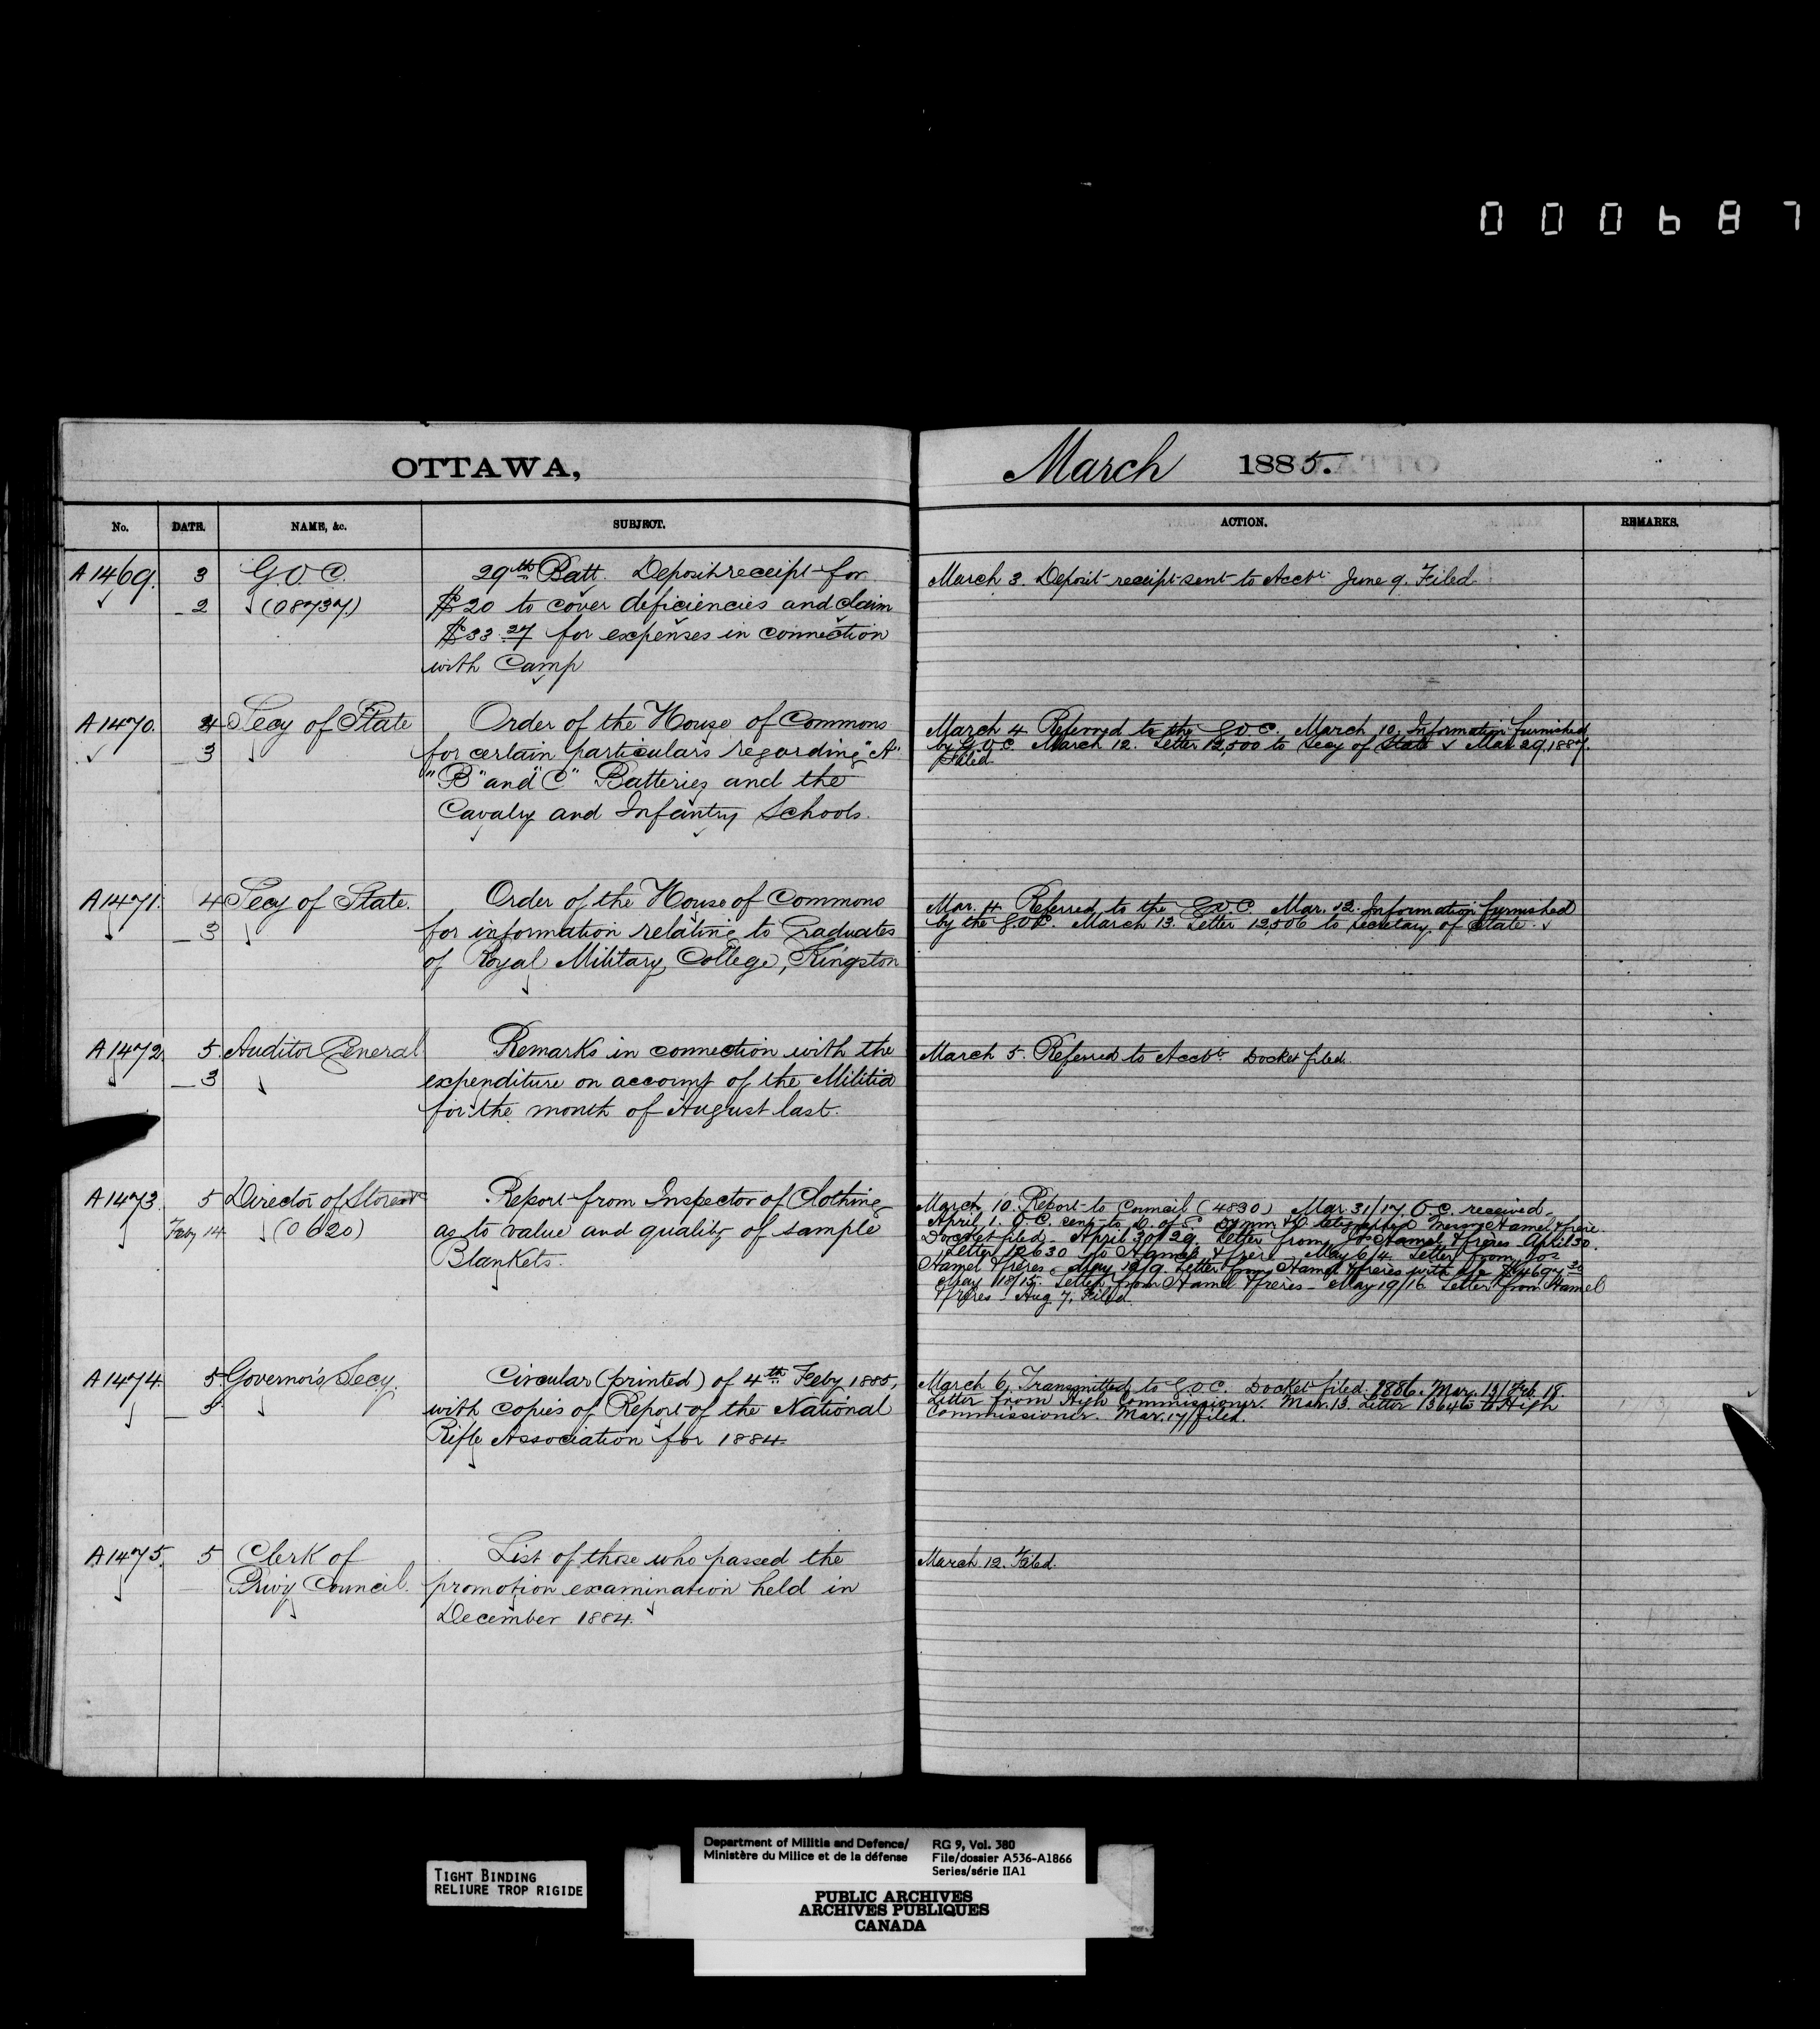 000687
OTTAWA, March 1885.
No. DATE. NAME, &c. SUBJECT. ACTION. REMARKS.
A1469. 3 G.O.C. 29th Batt. Deposit receipt for
2 (08737) $20 to cover deficiencies and claim
$33.27 for expenses in connection
with Camp
March 3. Deposit receipt sent to Acctt. June 9. Filed
A1470. 4 Secy of State Order of the House of Commons
3 for certain particulars regarding "A"
"B" and "C" Batteries and the
Cavalry and Infantry Schools.
March 4 Referred to the G.O.C. March 10. Information furnished
by G.O.C. March 12. Letter 12,500 to Secy of State Mar 29, 1887.
Filed
A1471. 4 Secy of State. Order of the House of Commons
3 for information relating to Graduates
of Royal Military College, Kingston
Mar. 4 Referred to the G.O.C. Mar. 12. Information furnished
by the G.O.C. March 13. Letter 12,506 to Secretary of State.
A1472 5. Auditor General Remarks in connection with the
3 expenditure on account of the Militia
for the month of August last.
March 5. Referred to Acctt. Docket filed.
A1473. 5 Director of Stores Report from Inspector of Clothing
Feby 14 (0620) as to value and quality of sample
Blankets.
March 10. Report to Council (4830) Mar. 31/17. O.C. received.
April 1. O.C. sent to D. of S. telegraphed Messrs Hamel & frere
Docket filed - April 30/29. Letter from Jos Hamel & freres - April 30.
Letter 12630 to Hamel & frere May 6/4. Letter from Jos
Hamel & freres - May 12/9. Letter from Hamel & freres with
May 18/15. Letter from Hamel & freres - May 19/16 Letter from Hamel
& freres - Aug 7, Filed.
A1474. 5. Governor's Secy. Circular (printed) of 4th Feby 1885,
5 with copies of Report of the National
Rifle Association for 1884.
March 6. Transmitted to G.O.C. Docket filed. 1886. Mar. 13/Feb 18.
Letter from High Commissioner. Mar. 13. Letter 13646 to High
Commissioner. Mar. 17/filed.
A1475. 5 Clerk of List of those who passed the
Privy Council. promotion examination held in
December 1884.
March 12. Filed.
TIGHT BINDING
RELIURE TROP RIGIDE
Department of Militia and Defence/
Ministère du Milice et de la défense
RG 9, Vol. 380
File/dossier A536-A1866
Series/série IIA1
PUBLIC ARCHIVES
ARCHIVES PUBLIQUES
CANADA